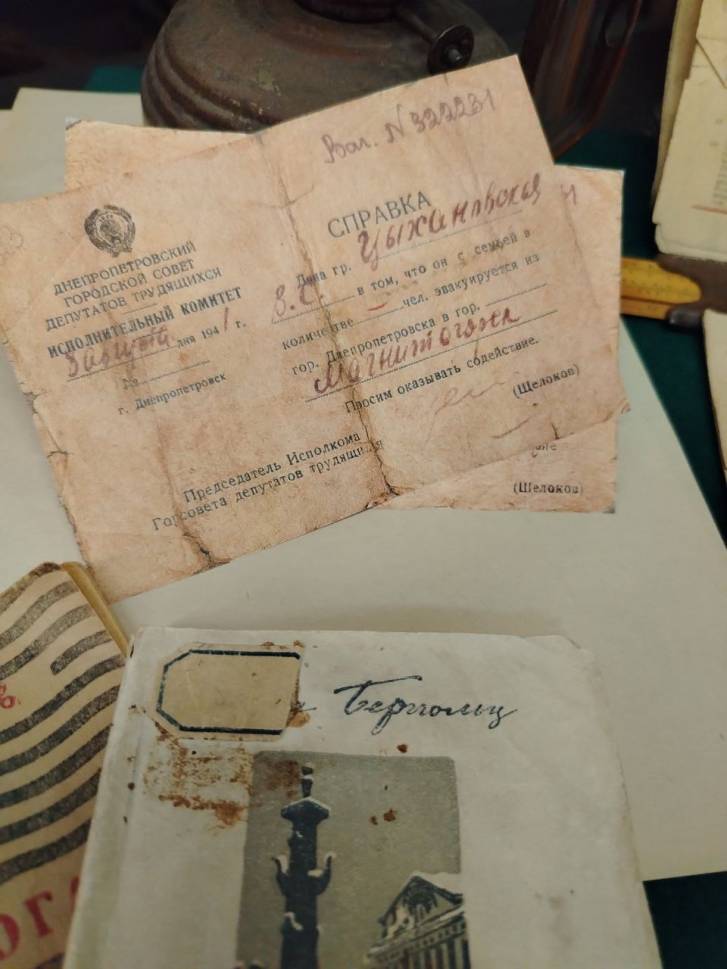 Ваг. N 322231
СПРАВКА
Дана гр. Цыхановская
В. С. в том, что он с семьей в
количестве — чел. эвакуируется из
гор. Днепропетровска в гор.
Магнитогорск
Просим оказывать содействие.
(Щелоков)
ДНЕПРОПЕТРОВСКИЙ
ГОРОДСКОЙ СОВЕТ
ДЕПУТАТОВ ТРУДЯЩИХСЯ
ИСПОЛНИТЕЛЬНЫЙ КОМИТЕТ
августа дня 1941 г.
№
г. Днепропетровск
Председатель Исполкома
Горсовета депутатов трудящихся
(Щелоков)
Берггольц